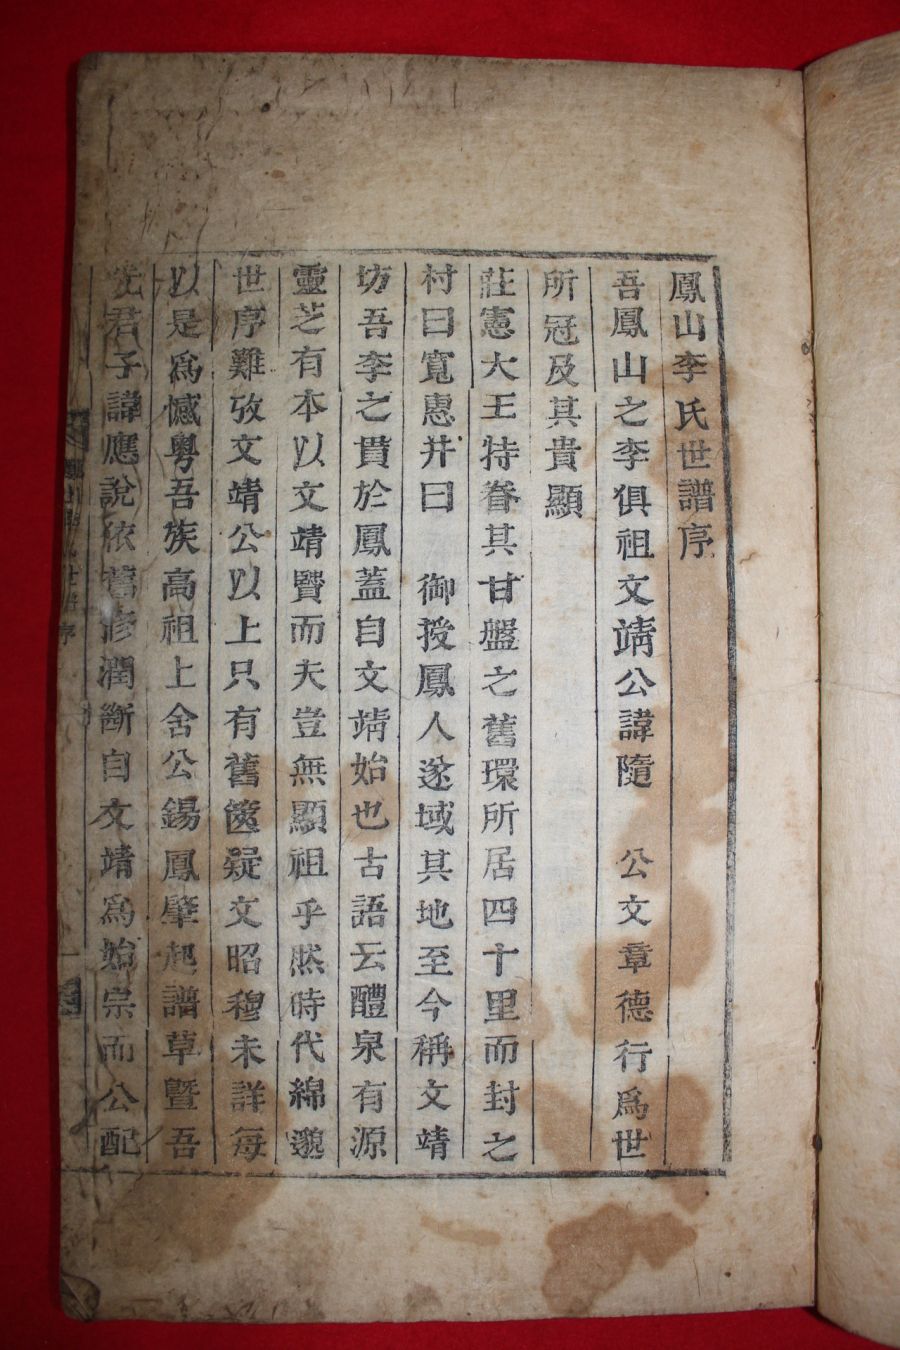 鳳山李氏世譜序
吾鳳山之李俱祖文靖公諱隨 公文章德行爲世
所冠及其貴顯
莊憲大王特眷其甘盤之舊環所居四十里而封之
村曰寬惠井曰 御授鳳人遂域其地至今稱文靖
坊吾李之貫於鳳蓋自文靖始也古語云醴泉有源
靈芝有本以文靖賢而夫豈無顯祖乎然時代綿邈
世序難攷文靖公以上只有舊篋疑文昭穆未詳每
以是爲憾粤吾族高祖上舍公錫鳳肇起譜草曁吾
先君子諱應說依舊修潤斷自文靖爲始宗而公配